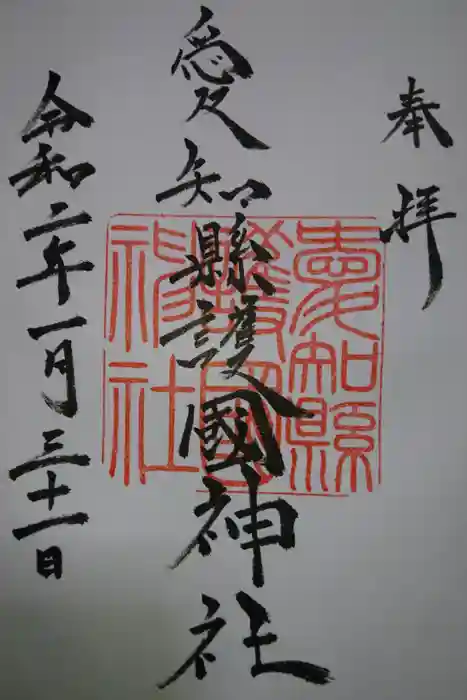 奉拝
愛知縣護國神社
愛知縣護國神社
令和二年一月三十一日